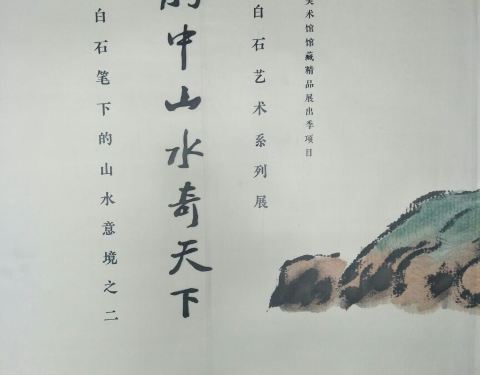 美术馆馆藏精品展出季项目
白石艺术系列展
胸中山水奇天下
白石笔下的山水意境之二